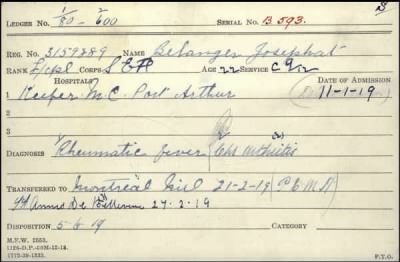 LEDGER NO. 1/80 - 2/600 SERIAL NO. B 593.
REG. NO. 3159289 NAME Belanger Josephat
RANK L/cpl CORPS AGE 22 SERVICE
HOSPITALS DATE OF ADMISSION
1 Keefer M.C. Port Arthur 11-1-19
1
2
3
DIAGNOSIS Rheumatic fever arthritis
TRANSFERRED TO Montreal Mil 21-2-19
St Annes De Bellevue 27-2-19
DISPOSITION 5-6-19 CATEGORY
M.F.W. 2553.
1772-39-1232.
P.T.O.